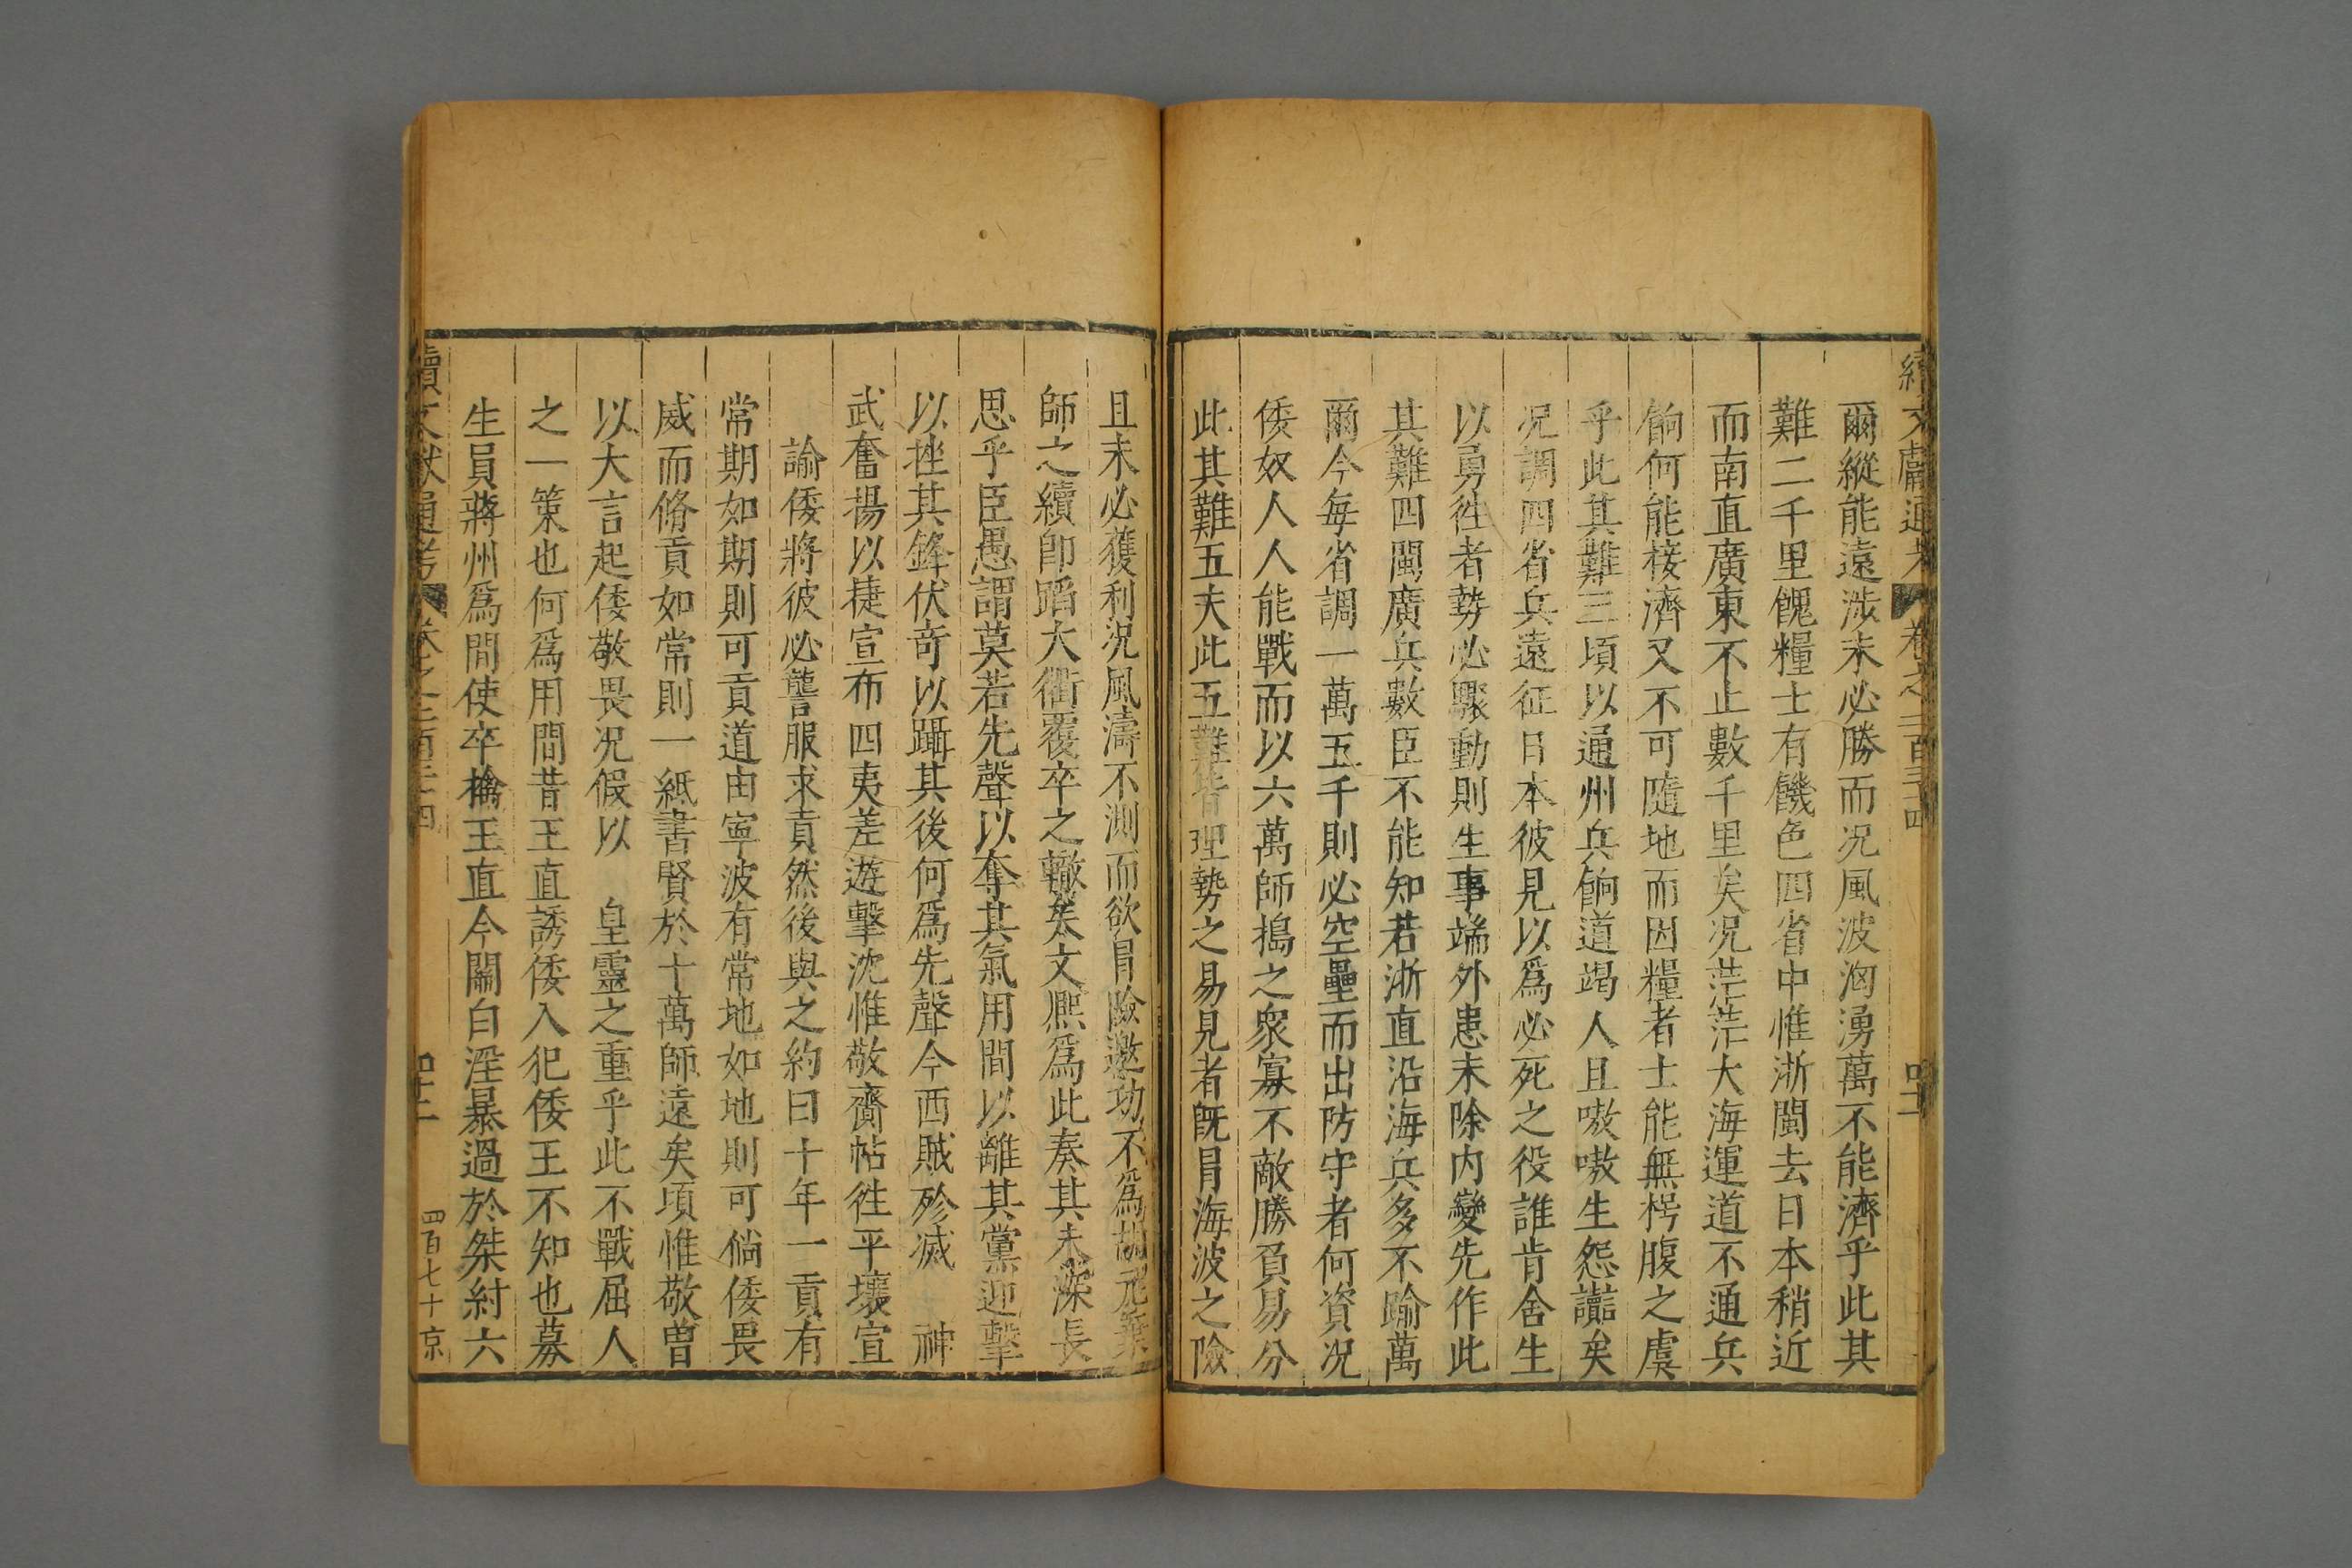 續文獻通考 卷之二百三十四
爾縱能遠涉未必勝而况風波洶湧萬不能濟乎此其
難二千里餽糧士有饑色四省中惟浙閩去日本稍近
而南直廣東不止數千里矣况茫茫大海運道不通兵
餉何能接濟又不可隨地而因糧者士能無枵腹之虞
乎此其難三頃以通州兵餉道竭人且嗷嗷生怨讟矣
况調四省兵遠征日本彼見以爲必死之役誰肯舍生
以勇徃者勢必驟動則生事端外患未除内變先作此
其難四閩廣兵數臣不能知若浙直沿海兵多不踰萬
爾今每省調一萬五千則必空壘而出防守者何資况
倭奴人人能戰而以六萬師搗之衆寡不敵勝負易分
此其難五夫此五難皆理勢之易見者既冐海波之險
且未必獲利况風濤不測而欲冐險邀功不爲胡元棄
師之續卽蹈大衢覆卒之轍矣文熈爲此奏其未深長
思乎臣愚謂莫若先聲以奪其氣用間以離其黨迎擊
以挫其鋒伏竒以躡其後何爲先聲今西賊殄滅 神
武奮揚以捷宣布四夷差遊擊沈惟敬齎帖徃平壤宣
諭倭將彼必讋服求貢然後與之約曰十年一貢有
常期如期則可貢道由寧波有常地如地則可倘倭畏
威而脩貢如常則一紙書賢於十萬師遠矣頃惟敬曽
以大言起倭敬畏况假以 皇靈之重乎此不戰屈人
之一策也何爲用間昔王直誘倭入犯倭王不知也募
生員蔣州爲間使卒擒王直今關白淫暴過於桀紂六
續文獻通考 卷之二百三十四 四十二 四百七十京